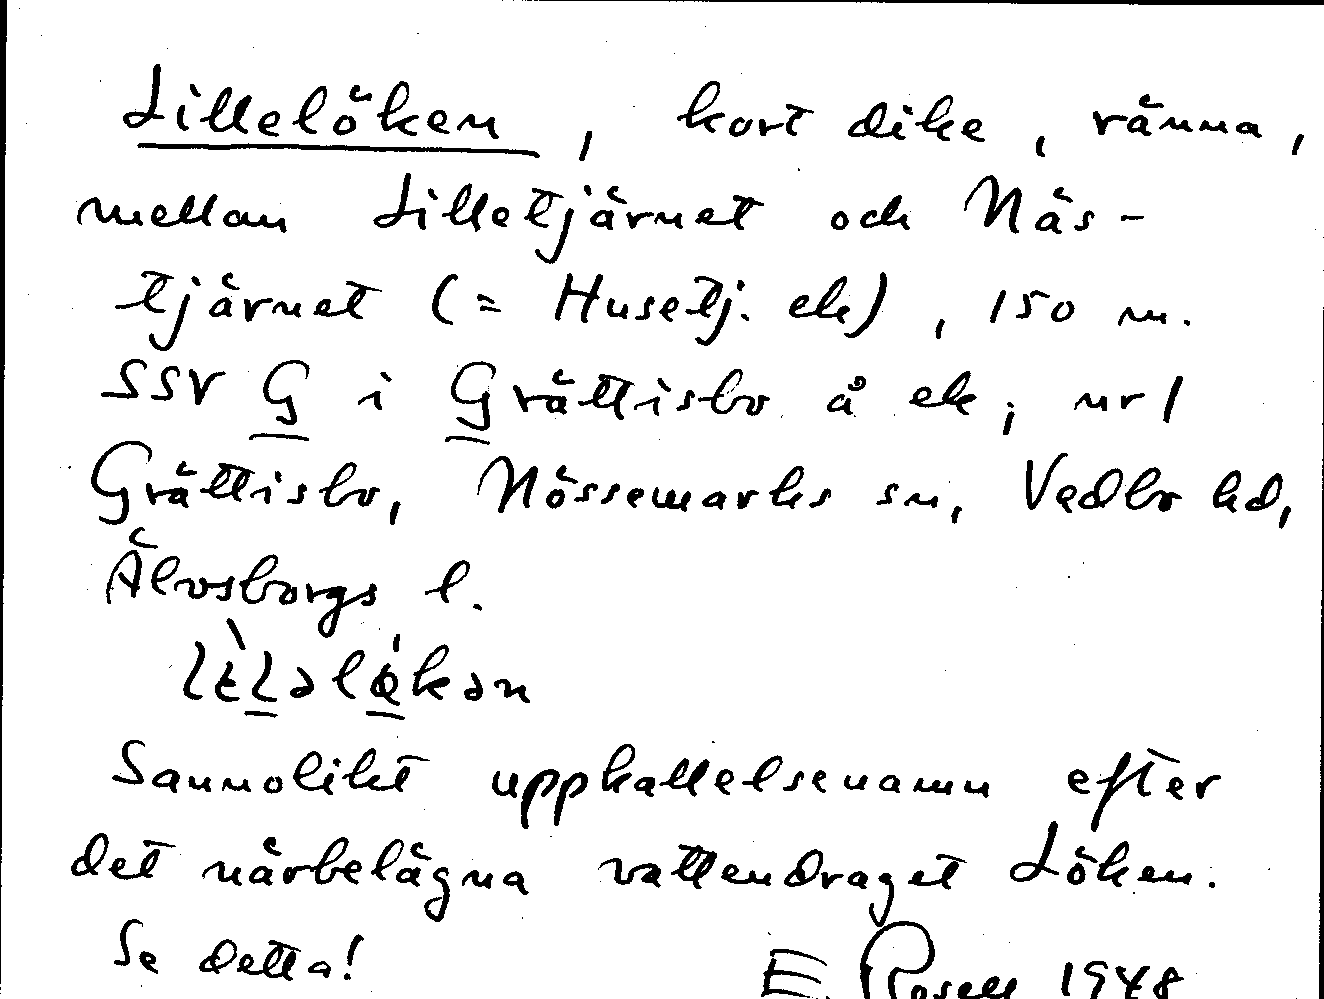 Lillelöken, kort dike, ränna,
mellan Lilletjärnet och Näs-
tjärnet (= Husetj. ek), 150 m.
SSV G i Grättisbo å ek; nr 1
Grättisbo, Nössemarks sn, Vedbo hd,
Älvsborgs l.
Sannolikt uppkallelsenamn efter
det närbelägna vattendraget Löken.
Se detta!
E Rosell 1948